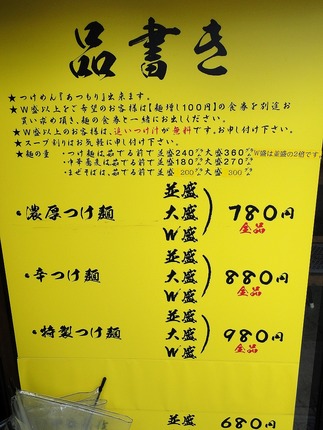 品書き
★つけめん『あつもり』出来ます。
★W盛以上をご希望のお客様は【麺増し100円】の食券を別途お
買い求め頂き、麺の食券と一緒にお出しください。
★W盛以上のお客様は、追いつけ汁が無料です。お申し付け下さい。
★スープ割りはお気軽に申し付け下さい。
★麺の量 ・つけ麺は茹でる前で並盛240㌘大盛360㌘W盛は並盛の2倍です。
・中華蕎麦は茹でる前で並盛180㌘大盛270㌘
・まぜそばは、茹でる前で並盛 200㌘ 大盛 300㌘
・濃厚つけ麺 並盛 大盛 W盛 780円 全品
・辛つけ麺 並盛 大盛 W盛 880円 全品
・特製つけ麺 並盛 大盛 W盛 980円 全品
並盛 680円